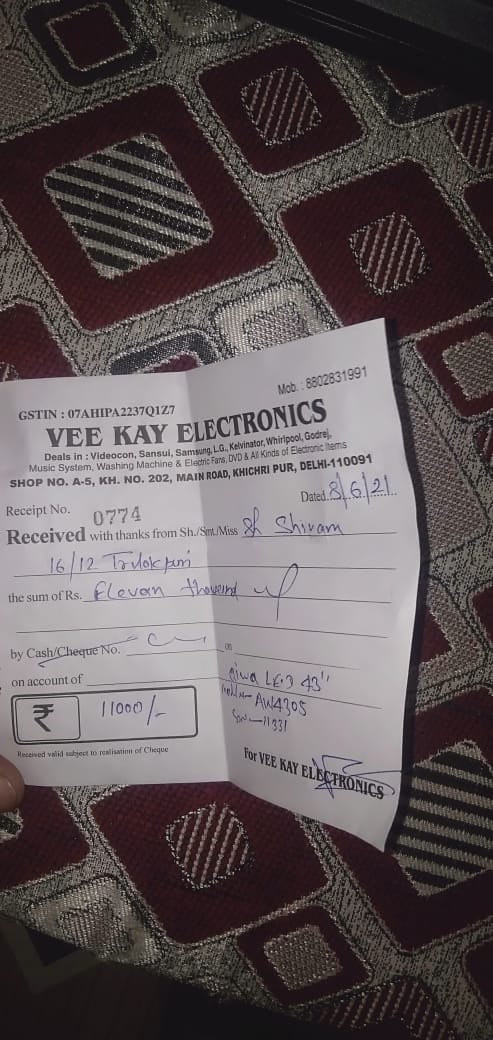 Mob. : 8802831991
GSTIN : 07AHIPA2237Q1Z7
VEE KAY ELECTRONICS
Deals in : Videocon, Sansui, Samsung, L.G., Kelvinator, Whirlpool, Godrej,
Music System, Washing Machine & Electric Fans, DVD & All Kinds of Electronic Items
SHOP NO. A-5, KH. NO. 202, MAIN ROAD, KHICHRI PUR, DELHI-110091
Receipt No. 0774 Dated 8/6/21
Received with thanks from Sh./Smt./Miss Sh Shivam
16/12 Trilokpuri
the sum of Rs. Elevan thousand
by Cash/Cheque No. on
on account of aiwa LED 43"
AW4305
11331
₹ 11000/-
Received valid subject to realisation of Cheque
For VEE KAY ELECTRONICS